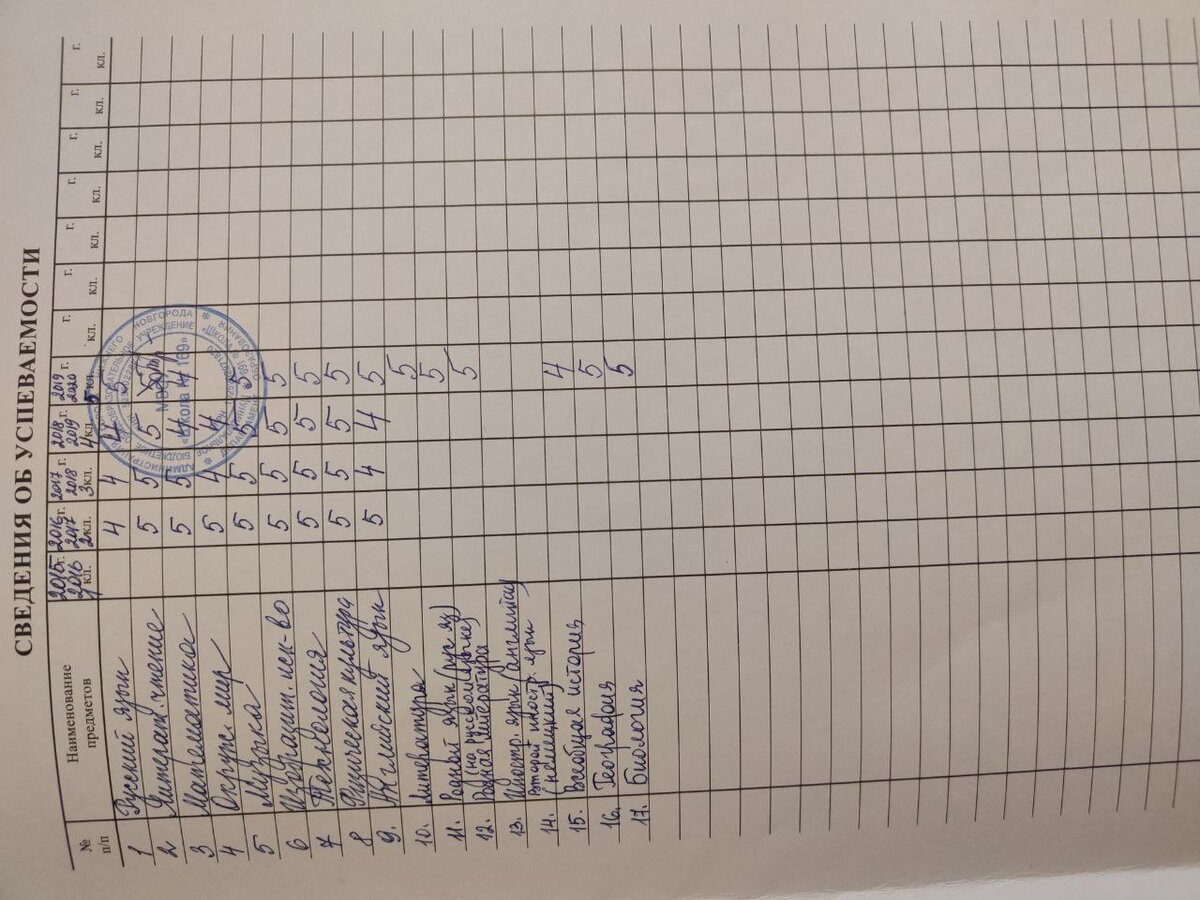 СВЕДЕНИЯ ОБ УСПЕВАЕМОСТИ
№ п/п Наименование предметов 2015 2016 г. 1 кл. 2016 2017 г. 2 кл. 2017 2018 г. 3 кл. 2018 2019 г. 4 кл. 2019 2020 г. 5 кл. г. кл. г. кл. г. кл. г. кл. г. кл. г. кл. г. кл.
1 Русский язык 4 4 4 5
2 Литерат. чтение 5 5 5
3 Математика 5 5 4 4
4 Окруж. мир 5 4 4
5 Музыка 5 5 5 5
6 Изобразит. иск-во 5 5 5 5
7 Технология 5 5 5 5
8 Физическая культура 5 5 5 5
9. Английский язык 5 4 4 5
10. Литература 5
11. Родной язык (рус яз) 5
12. (на русском языке)
Родная литература 5
13. Иностр. язык (английский)
14. Второй иностр. язык
(немецкий)
15. Всеобщая история 4
16. География 5
17. Биология 5
«Школа № 169»